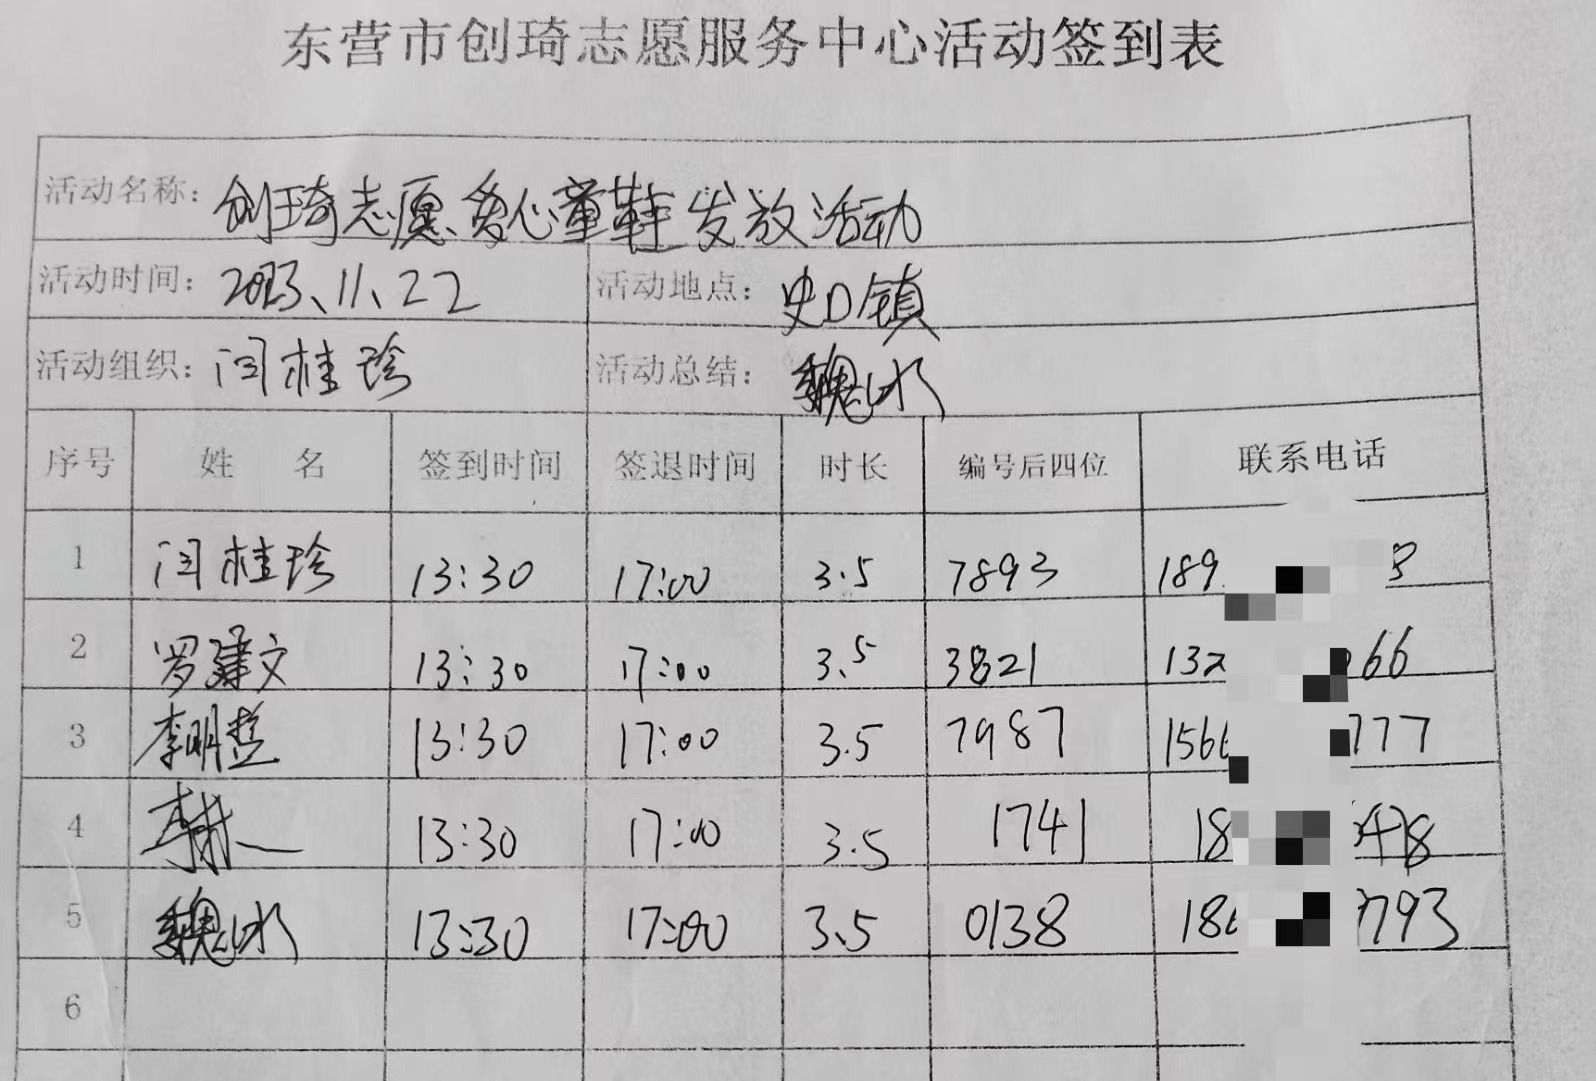 东营市创琦志愿服务中心活动签到表
活动名称：创琦志愿爱心童鞋发放活动
活动时间：2023、11、22 活动地点：史口镇
活动组织：闫桂珍 活动总结：魏冰
序号 姓名 签到时间 签退时间 时长 编号后四位 联系电话
1 闫桂珍 13:30 17:00 3.5 7893 189 3
2 罗建文 13:30 17:00 3.5 3821 132 66
3 李明哲 13:30 17:00 3.5 7987 156 777
4 13:30 17:00 3.5 1741 18 478
5 魏冰 13:30 17:00 3.5 0138 186 793
6